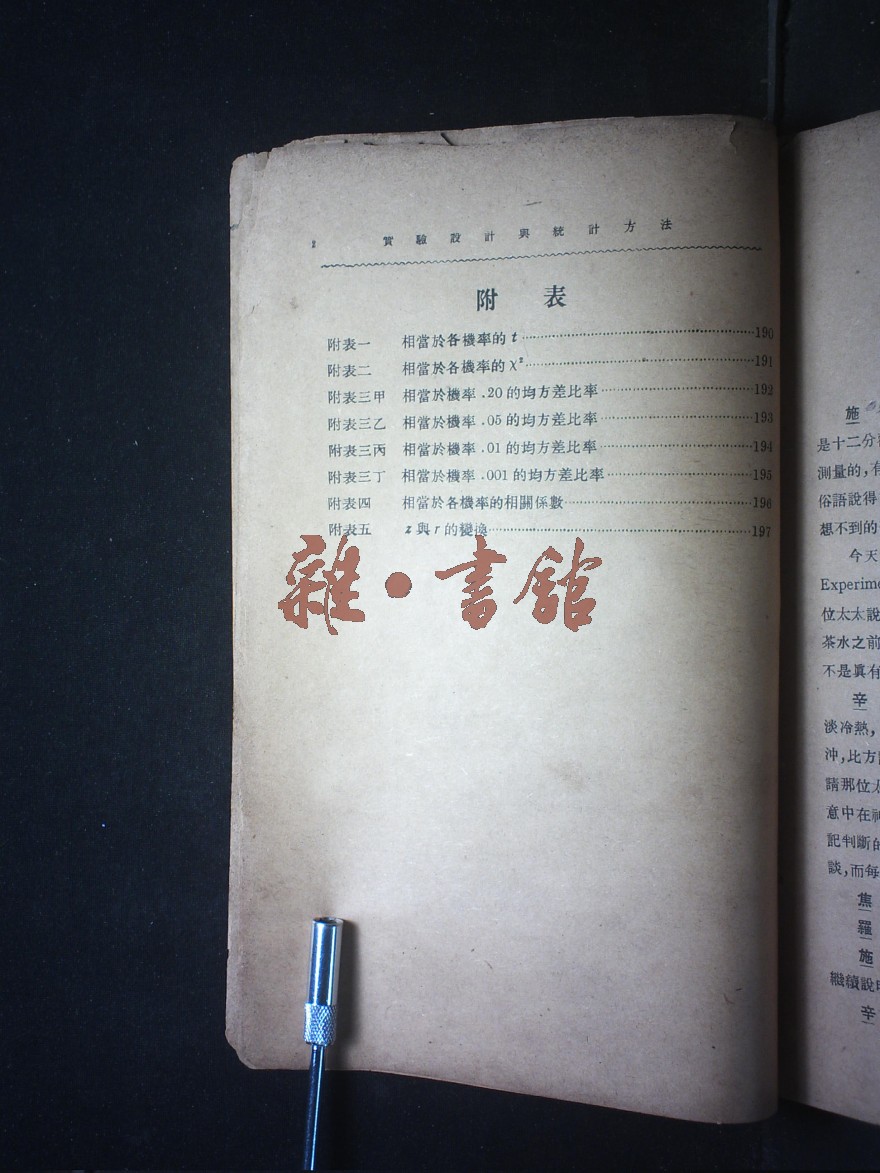 2 實驗設計與統計方法
附表
附表一 相當於各機率的 t 190
附表二 相當於各機率的 χ² 191
附表三甲 相當於機率 .20 的均方差比率 192
附表三乙 相當於機率 .05 的均方差比率 193
附表三丙 相當於機率 .01 的均方差比率 194
附表三丁 相當於機率 .001 的均方差比率 195
附表四 相當於各機率的相關係數 196
附表五 z 與 r 的變換 197
雜•書館
施
是十二分
測量的,有
俗語說得
想不到的
今天
Experime
位太太說
茶水之前
不是眞有
辛
淡冷熱,
沖,比方
請那位太
意中在神
記判斷的
談,而每
焦
羅
施
繼續說
辛